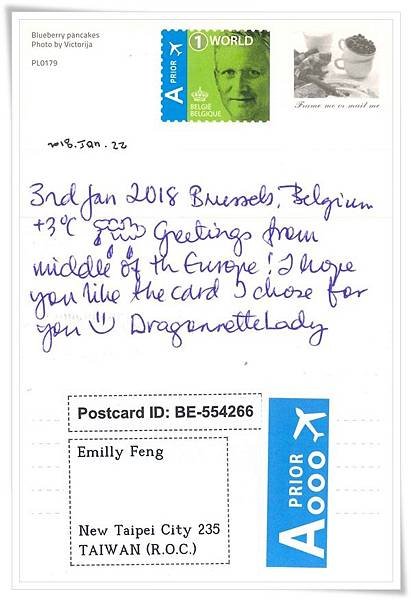 Blueberry pancakes
Photo by Victorija
PL0179
A PRIOR
1 WORLD
BELGIË
BELGIQUE
Frame me or mail me
2018. Jan. 22
3rd Jan 2018 Brussels, Belgium
+3°C Greetings from
middle of th Europe! I hope
you like the card I chose for
you DragonnetteLady
Postcard ID: BE-554266
Emilly Feng
New Taipei City 235
TAIWAN (R.O.C.)
A PRIOR